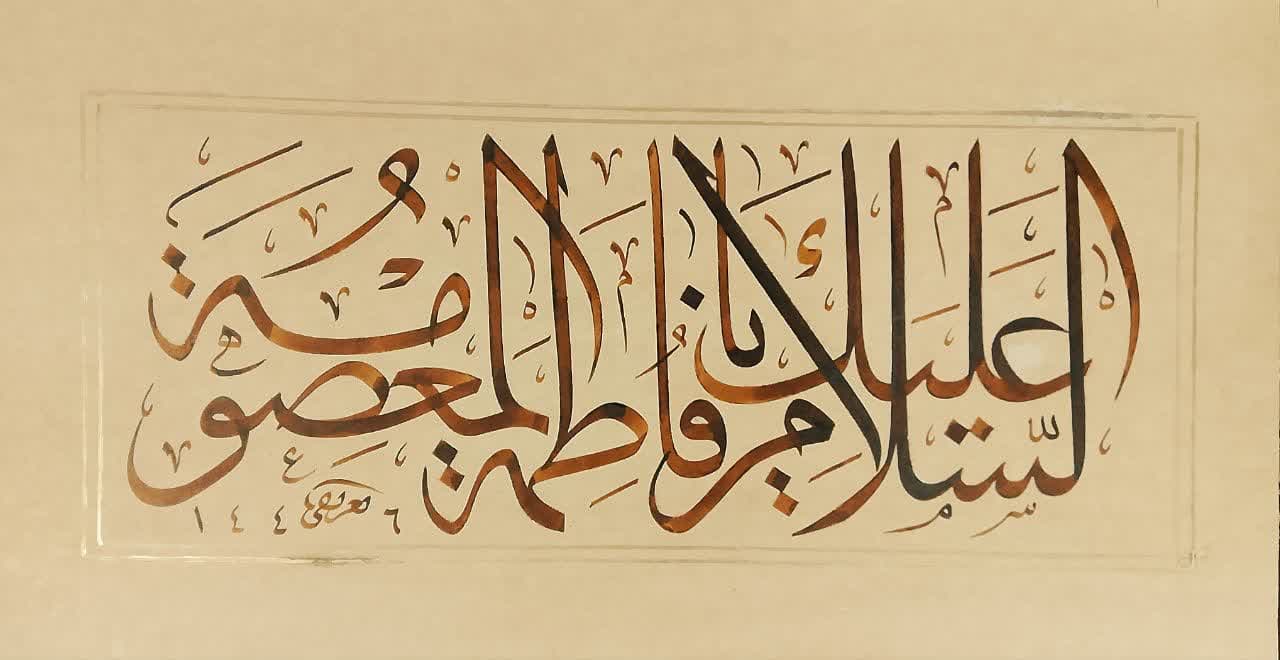 السلام عليك يا فاطمة المعصومة
١٤٤٦